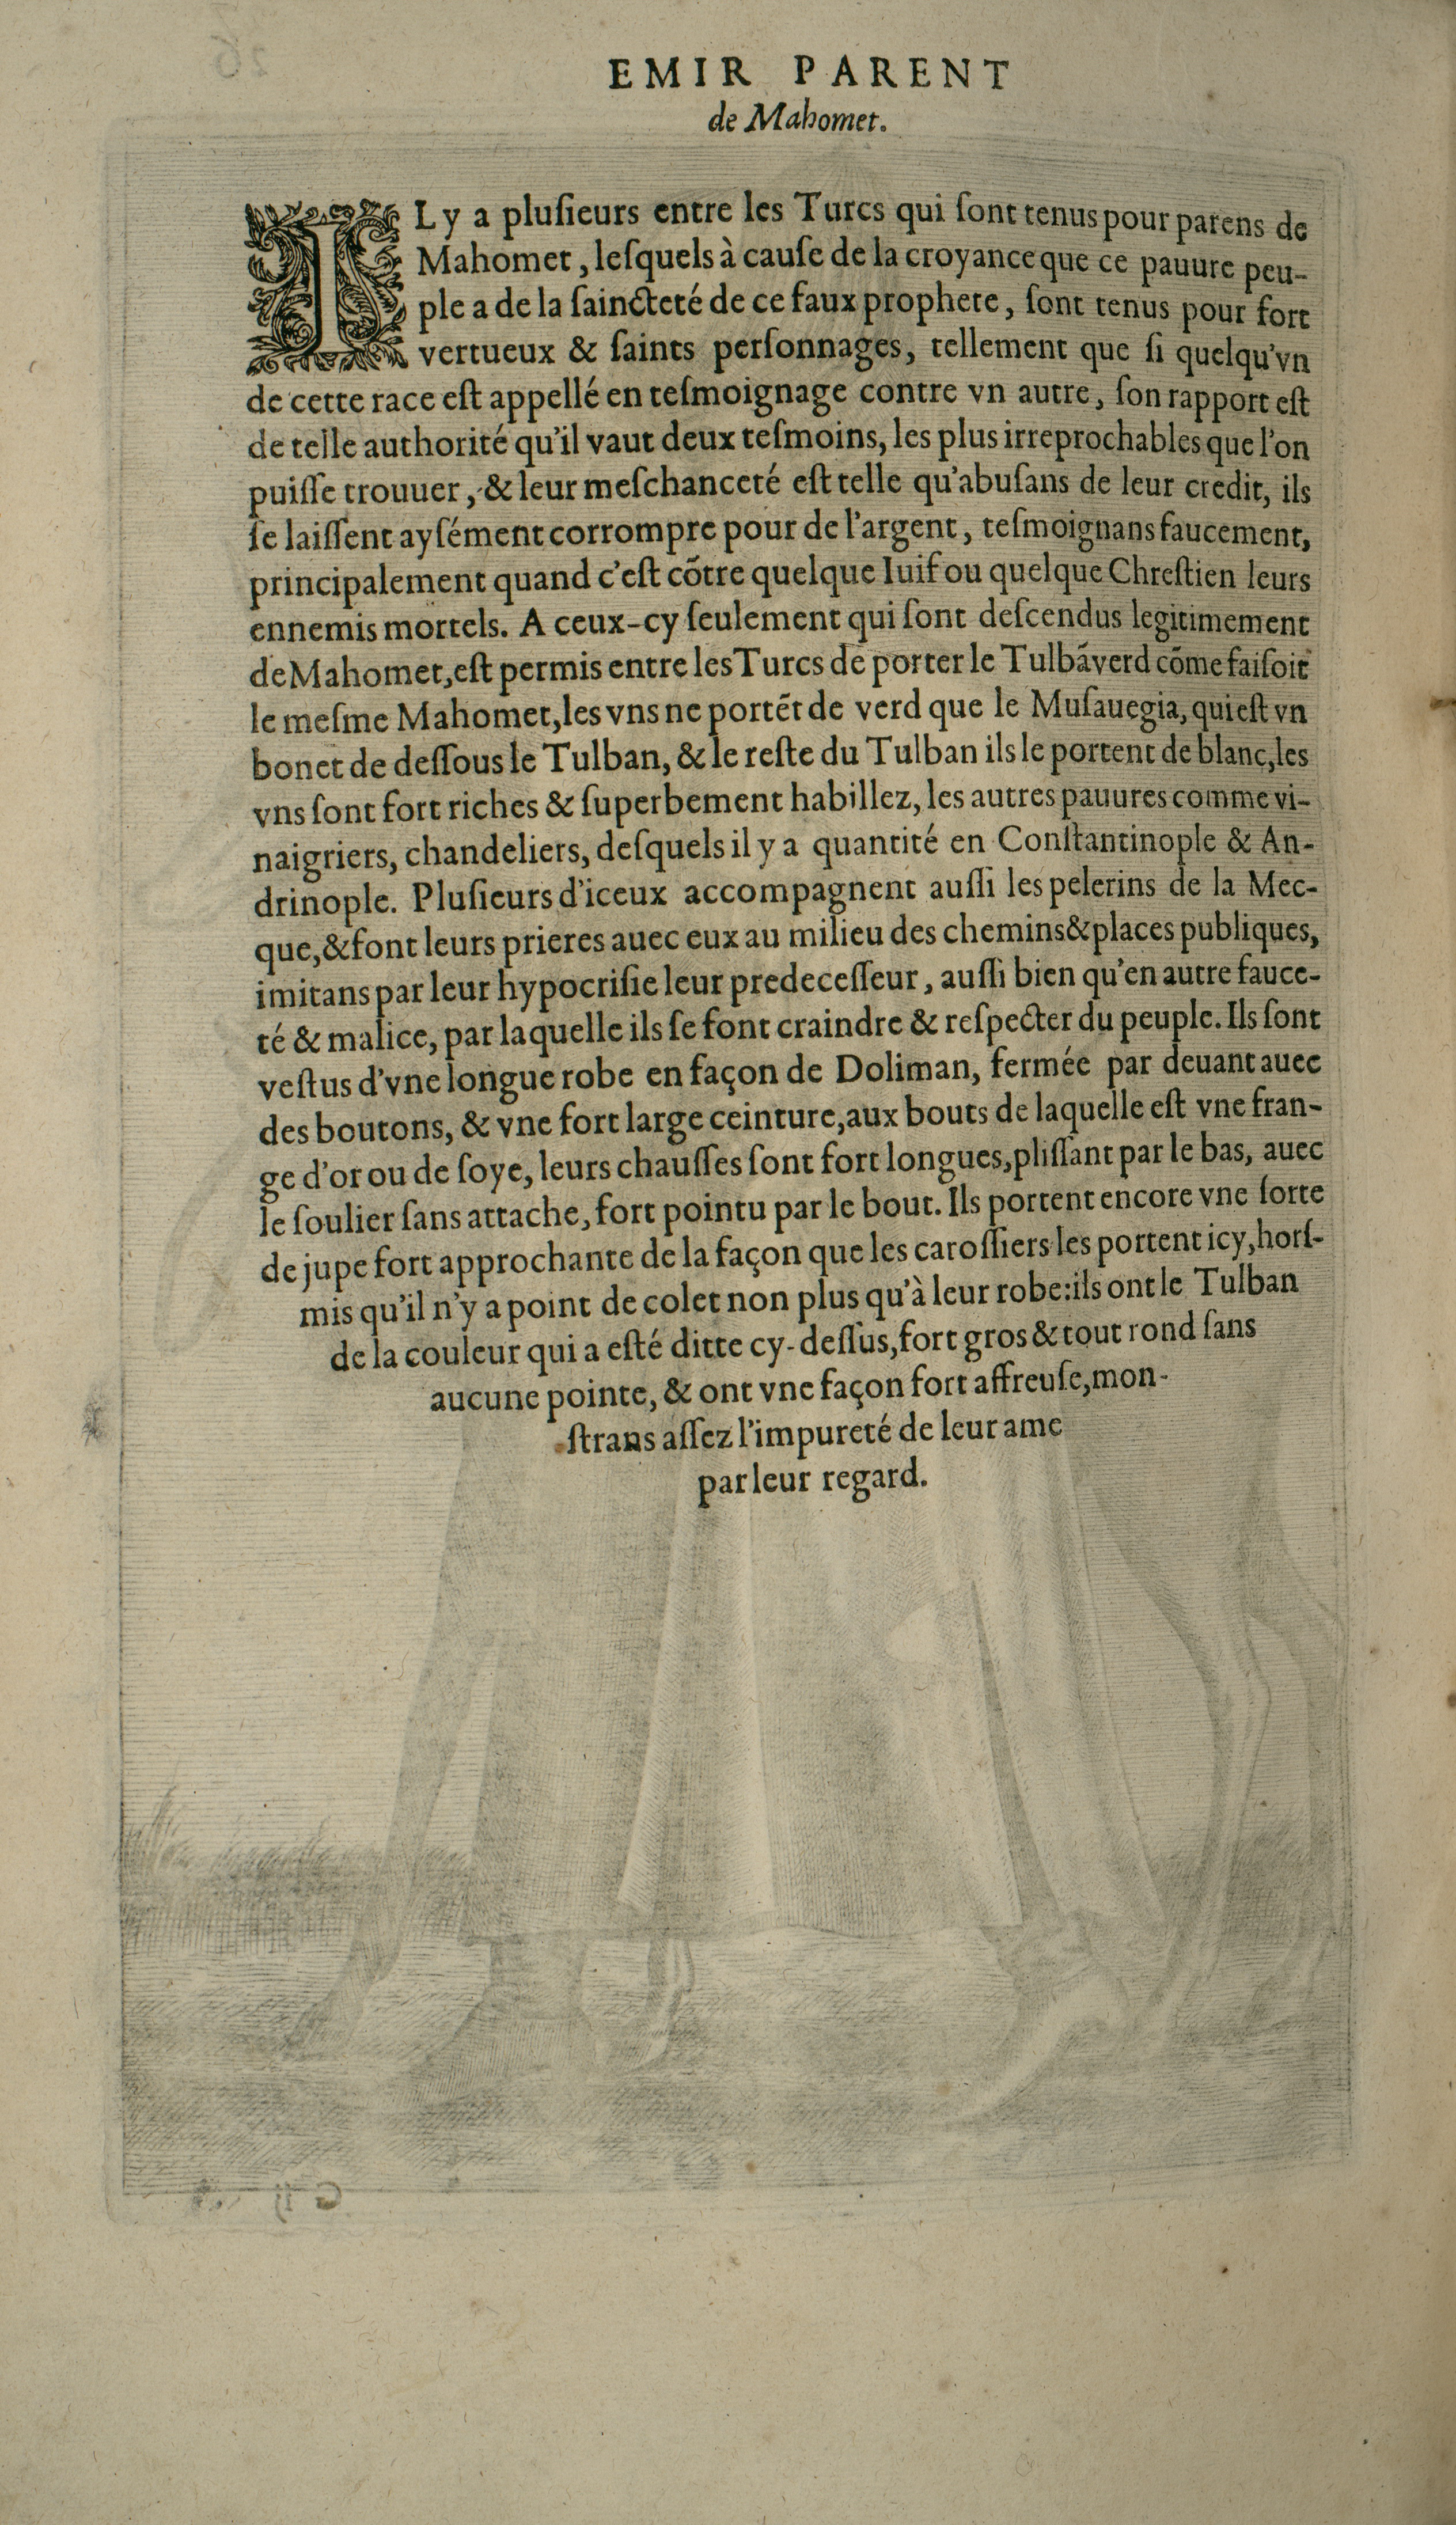 EMIR PARENT
de Mahomet.
IL y a pluſieurs entre les Turcs qui ſont tenus pour parens de
Mahomet, leſquels à cauſe de la croyance que ce pauure peu-
ple a de la ſaincteté de ce faux prophete, ſont tenus pour fort
vertueux & ſaints perſonnages, tellement que ſi quelqu'vn
de cette race eſt appellé en teſmoignage contre vn autre, ſon rapport eſt
de telle authorité qu'il vaut deux teſmoins, les plus irreprochables que l'on
puiſſe trouuer, & leur meſchanceté eſt telle qu'abuſans de leur credit, ils
ſe laiſſent ayſément corrompre pour de l'argent, teſmoignans faucement,
principalement quand c'eſt cõtre quelque Iuif ou quelque Chreſtien leurs
ennemis mortels. A ceux-cy ſeulement qui ſont deſcendus legitimement
de Mahomet, eſt permis entre les Turcs de porter le Tulbã verd cõme faiſoit
le meſme Mahomet, les vns ne portẽt de verd que le Muſauegia, qui eſt vn
bonet de deſſous le Tulban, & le reſte du Tulban ils le portent de blanc, les
vns ſont fort riches & ſuperbement habillez, les autres pauures comme vi-
naigriers, chandeliers, deſquels il y a quantité en Conſtantinople & An-
drinople. Pluſieurs d'iceux accompagnent auſſi les pelerins de la Mec-
que, & font leurs prieres auec eux au milieu des chemins & places publiques,
imitans par leur hypocriſie leur predeceſſeur, auſſi bien qu'en autre fauce-
té & malice, par laquelle ils ſe font craindre & reſpecter du peuple. Ils ſont
veſtus d'vne longue robe en façon de Doliman, fermée par deuant auec
des boutons, & vne fort large ceinture, aux bouts de laquelle eſt vne fran-
ge d'or ou de ſoye, leurs chauſſes ſont fort longues, pliſſant par le bas, auec
le ſoulier ſans attache, fort pointu par le bout. Ils portent encore vne ſorte
de jupe fort approchante de la façon que les caroſſiers les portent icy, horſ-
mis qu'il n'y a point de colet non plus qu'à leur robe: ils ont le Tulban
de la couleur qui a eſté ditte cy-deſſus, fort gros & tout rond ſans
aucune pointe, & ont vne façon fort affreuſe, mon-
ſtrans aſſez l'impureté de leur ame
par leur regard.